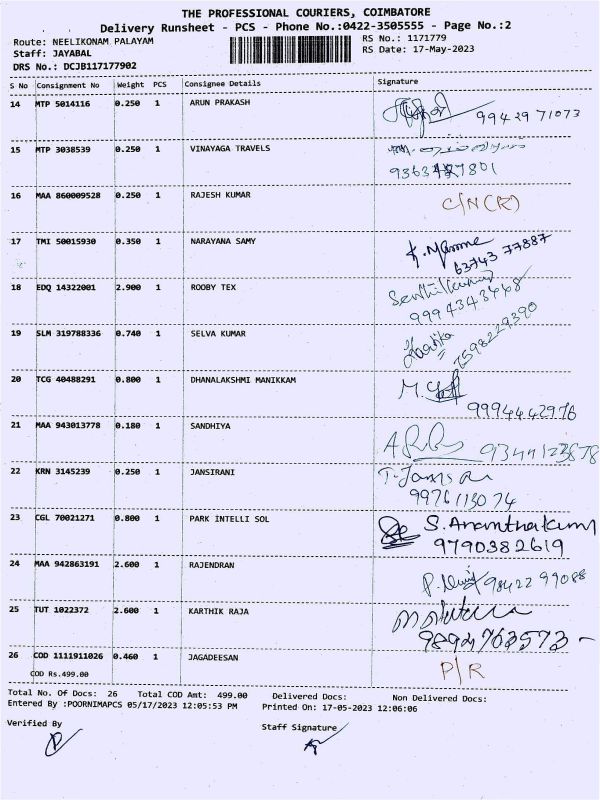 THE PROFESSIONAL COURIERS, COIMBATORE
Delivery Runsheet - PCS - Phone No.:0422-3505555 - Page No.:2
Route: NEELIKONAM PALAYAM RS No.: 1171779
Staff: JAYABAL RS Date: 17-May-2023
DRS No.: DCJB117177902
S No Consignment No Weight PCS Consignee Details Signature
14 MTP 5014116 0.250 1 ARUN PRAKASH
99429 71073
15 MTP 3038539 0.250 1 VINAYAGA TRAVELS
16 MAA 860009528 0.250 1 RAJESH KUMAR
C/N (R)
17 TMI 50015930 0.350 1 NARAYANA SAMY
63743 77887
18 EDQ 14322001 2.900 1 ROOBY TEX
Senthilkumar
9994343468
19 SLM 319788336 0.740 1 SELVA KUMAR
7598229390
20 TCG 40488291 0.800 1 DHANALAKSHMI MANIKKAM
9994442976
21 MAA 943013778 0.180 1 SANDHIYA
9344123878
22 KRN 3145239 0.250 1 JANSIRANI
9976113074
23 CGL 70021271 0.800 1 PARK INTELLI SOL
S. Ananthakumar
9790382619
24 MAA 942863191 2.600 1 RAJENDRAN
98422 99088
25 TUT 1022372 2.600 1 KARTHIK RAJA
9894763573
26 COD 1111911026 0.460 1 JAGADEESAN
P/R
COD Rs.499.00
Total No. Of Docs: 26 Total COD Amt: 499.00 Delivered Docs: Non Delivered Docs:
Entered By :POORNIMAPCS 05/17/2023 12:05:53 PM Printed On: 17-05-2023 12:06:06
Verified By Staff Signature